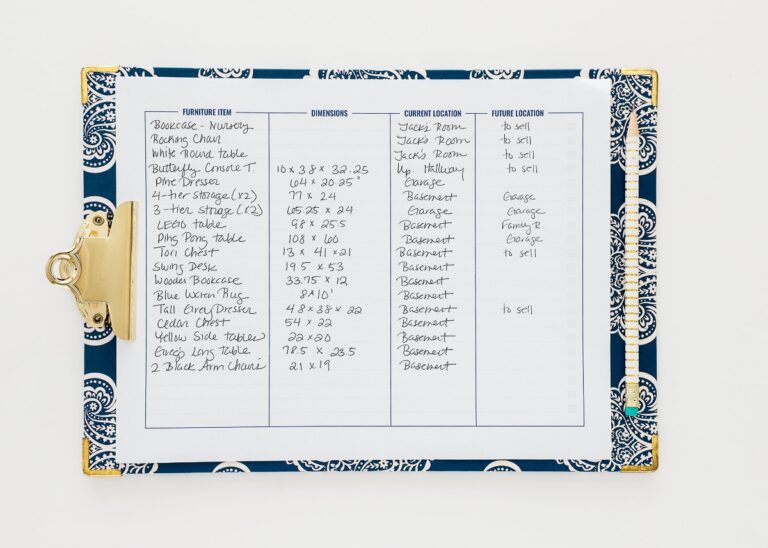 FURNITURE ITEM DIMENSIONS CURRENT LOCATION FUTURE LOCATION
Bookcase - Nursery Jack's Room to sell
Rocking Chair Jack's Room to sell
White Round table Jack's Room to sell
Butterfly Console T. 10 x 38 x 32.25 Up. Hallway to sell
Pine Dresser 64 x 20.25" Garage
4-tier storage (x2) 77 x 24 Basement Garage
3-tier storage (x2) 65.25 x 24 Garage Garage
LEGO table 98 x 25.5 Basement Family R.
Ping Pong table 108 x 60 Basement Garage
Tori Chest 13 x 41 x 21 Basement to sell
Swing Desk 19.5 x 53 Basement
Wooden Bookcase 33.75 x 12 Basement
Blue Woven Rug 8x10' Basement
Tall Grey Dresser 48 x 38 x 22 Basement to sell
Cedar Chest 54 x 22 Basement
Yellow Side tables 22 x 20 Basement
Long Table 78.5 x 23.5 Basement
2 Black Arm Chairs 21 x 19 Basement